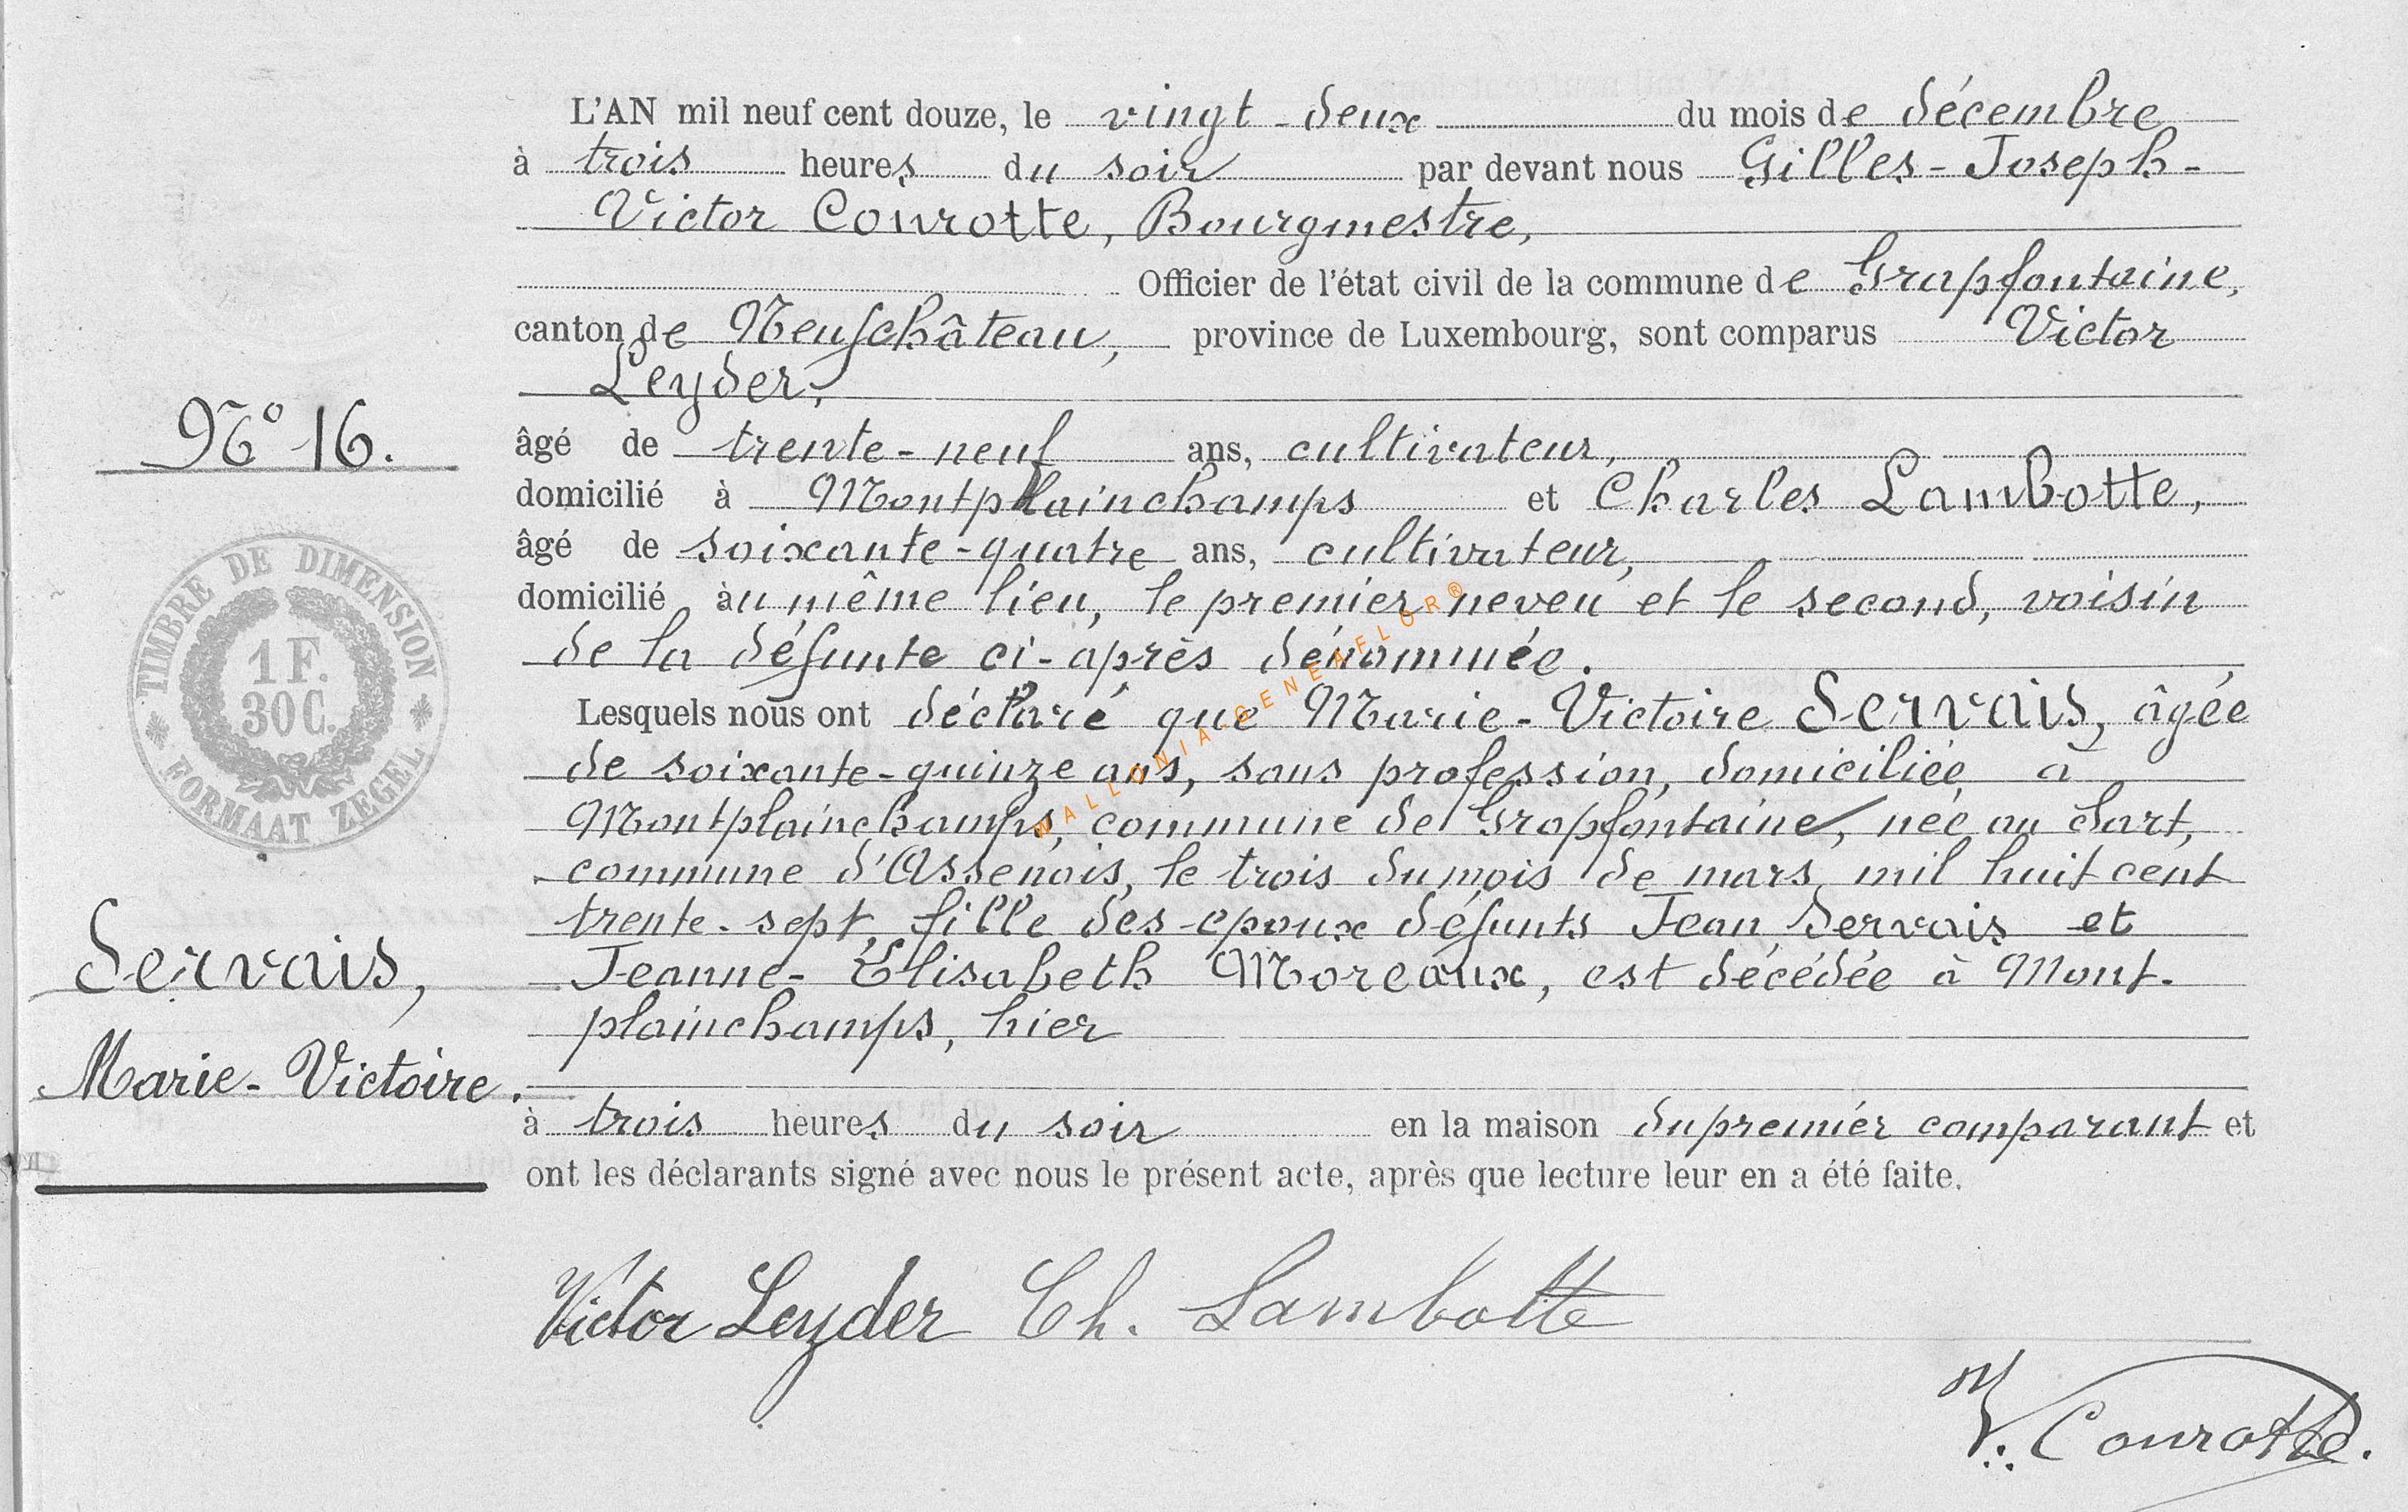 L'AN mil neuf cent douze, le vingt-deux du mois de décembre
à trois heures du soir par devant nous Gilles-Joseph-
Victor Conrotte, Bourgmestre,
Officier de l'état civil de la commune de Grapfontaine,
canton de Neufchâteau, province de Luxembourg, sont comparus Victor
Leyder,
âgé de trente-neuf ans, cultivateur,
domicilié à Montplainchamps et Charles Lambotte,
âgé de soixante-quatre ans, cultivateur,
domicilié au même lieu, le premier neveu et le second, voisin
de la défunte ci-après dénommée.
Lesquels nous ont déclaré que Marie-Victoire Servais, âgée
de soixante-quinze ans, sans profession, domiciliée à
Montplainchamps, commune de Grapfontaine, née au Sart,
commune d'Assenois, le trois du mois de mars mil huit cent
trente-sept, fille des époux défunts Jean Servais et
Jeanne-Elisabeth Moreaux, est décédée à Mont-
plainchamps, hier
à trois heures du soir en la maison du premier comparant et
ont les déclarants signé avec nous le présent acte, après que lecture leur en a été faite.
Victor Leyder Ch. Lambotte
V. Conrotte.
N° 16.
TIMBRE DE DIMENSION
1 F.
30 C.
FORMAAT ZEGEL
Servais,
Marie-Victoire.
WALLONIA-GENEAFLOR®